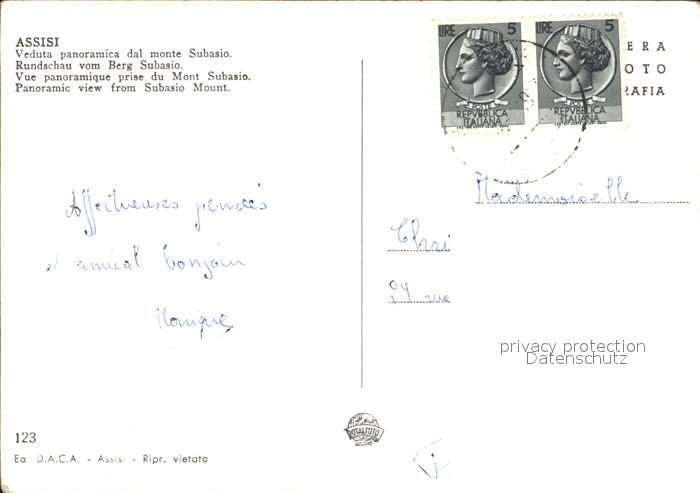 ASSISI
Veduta panoramica dal monte Subasio.
Rundschau vom Berg Subasio.
Vue panoramique prise du Mont Subasio.
Panoramic view from Subasio Mount.
LIRE 5
POSTE
REPVBBLICA
ITALIANA
LIRE 5
POSTE
REPVBBLICA
ITALIANA
ERA
OTO
RAFIA
Mademoiselle
Affectueuses pensées
et amical bonjour
Monique
27 rue
privacy protection
Datenschutz
123
Ed D.A.C.A. - Assisi - Ripr. vietata